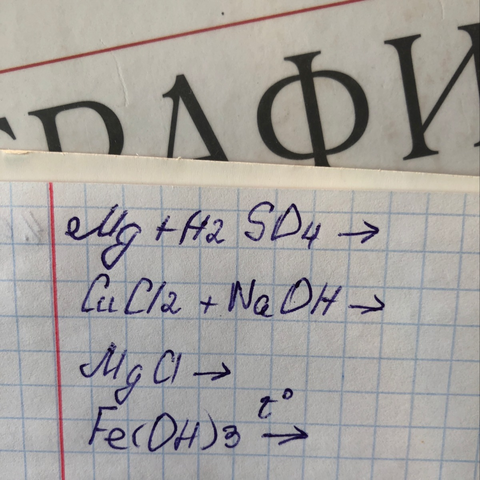 ГРАФИ
Mg + H2 SO4 →
CuCl2 + NaOH →
MgCl →
Fe(OH)3 t° →